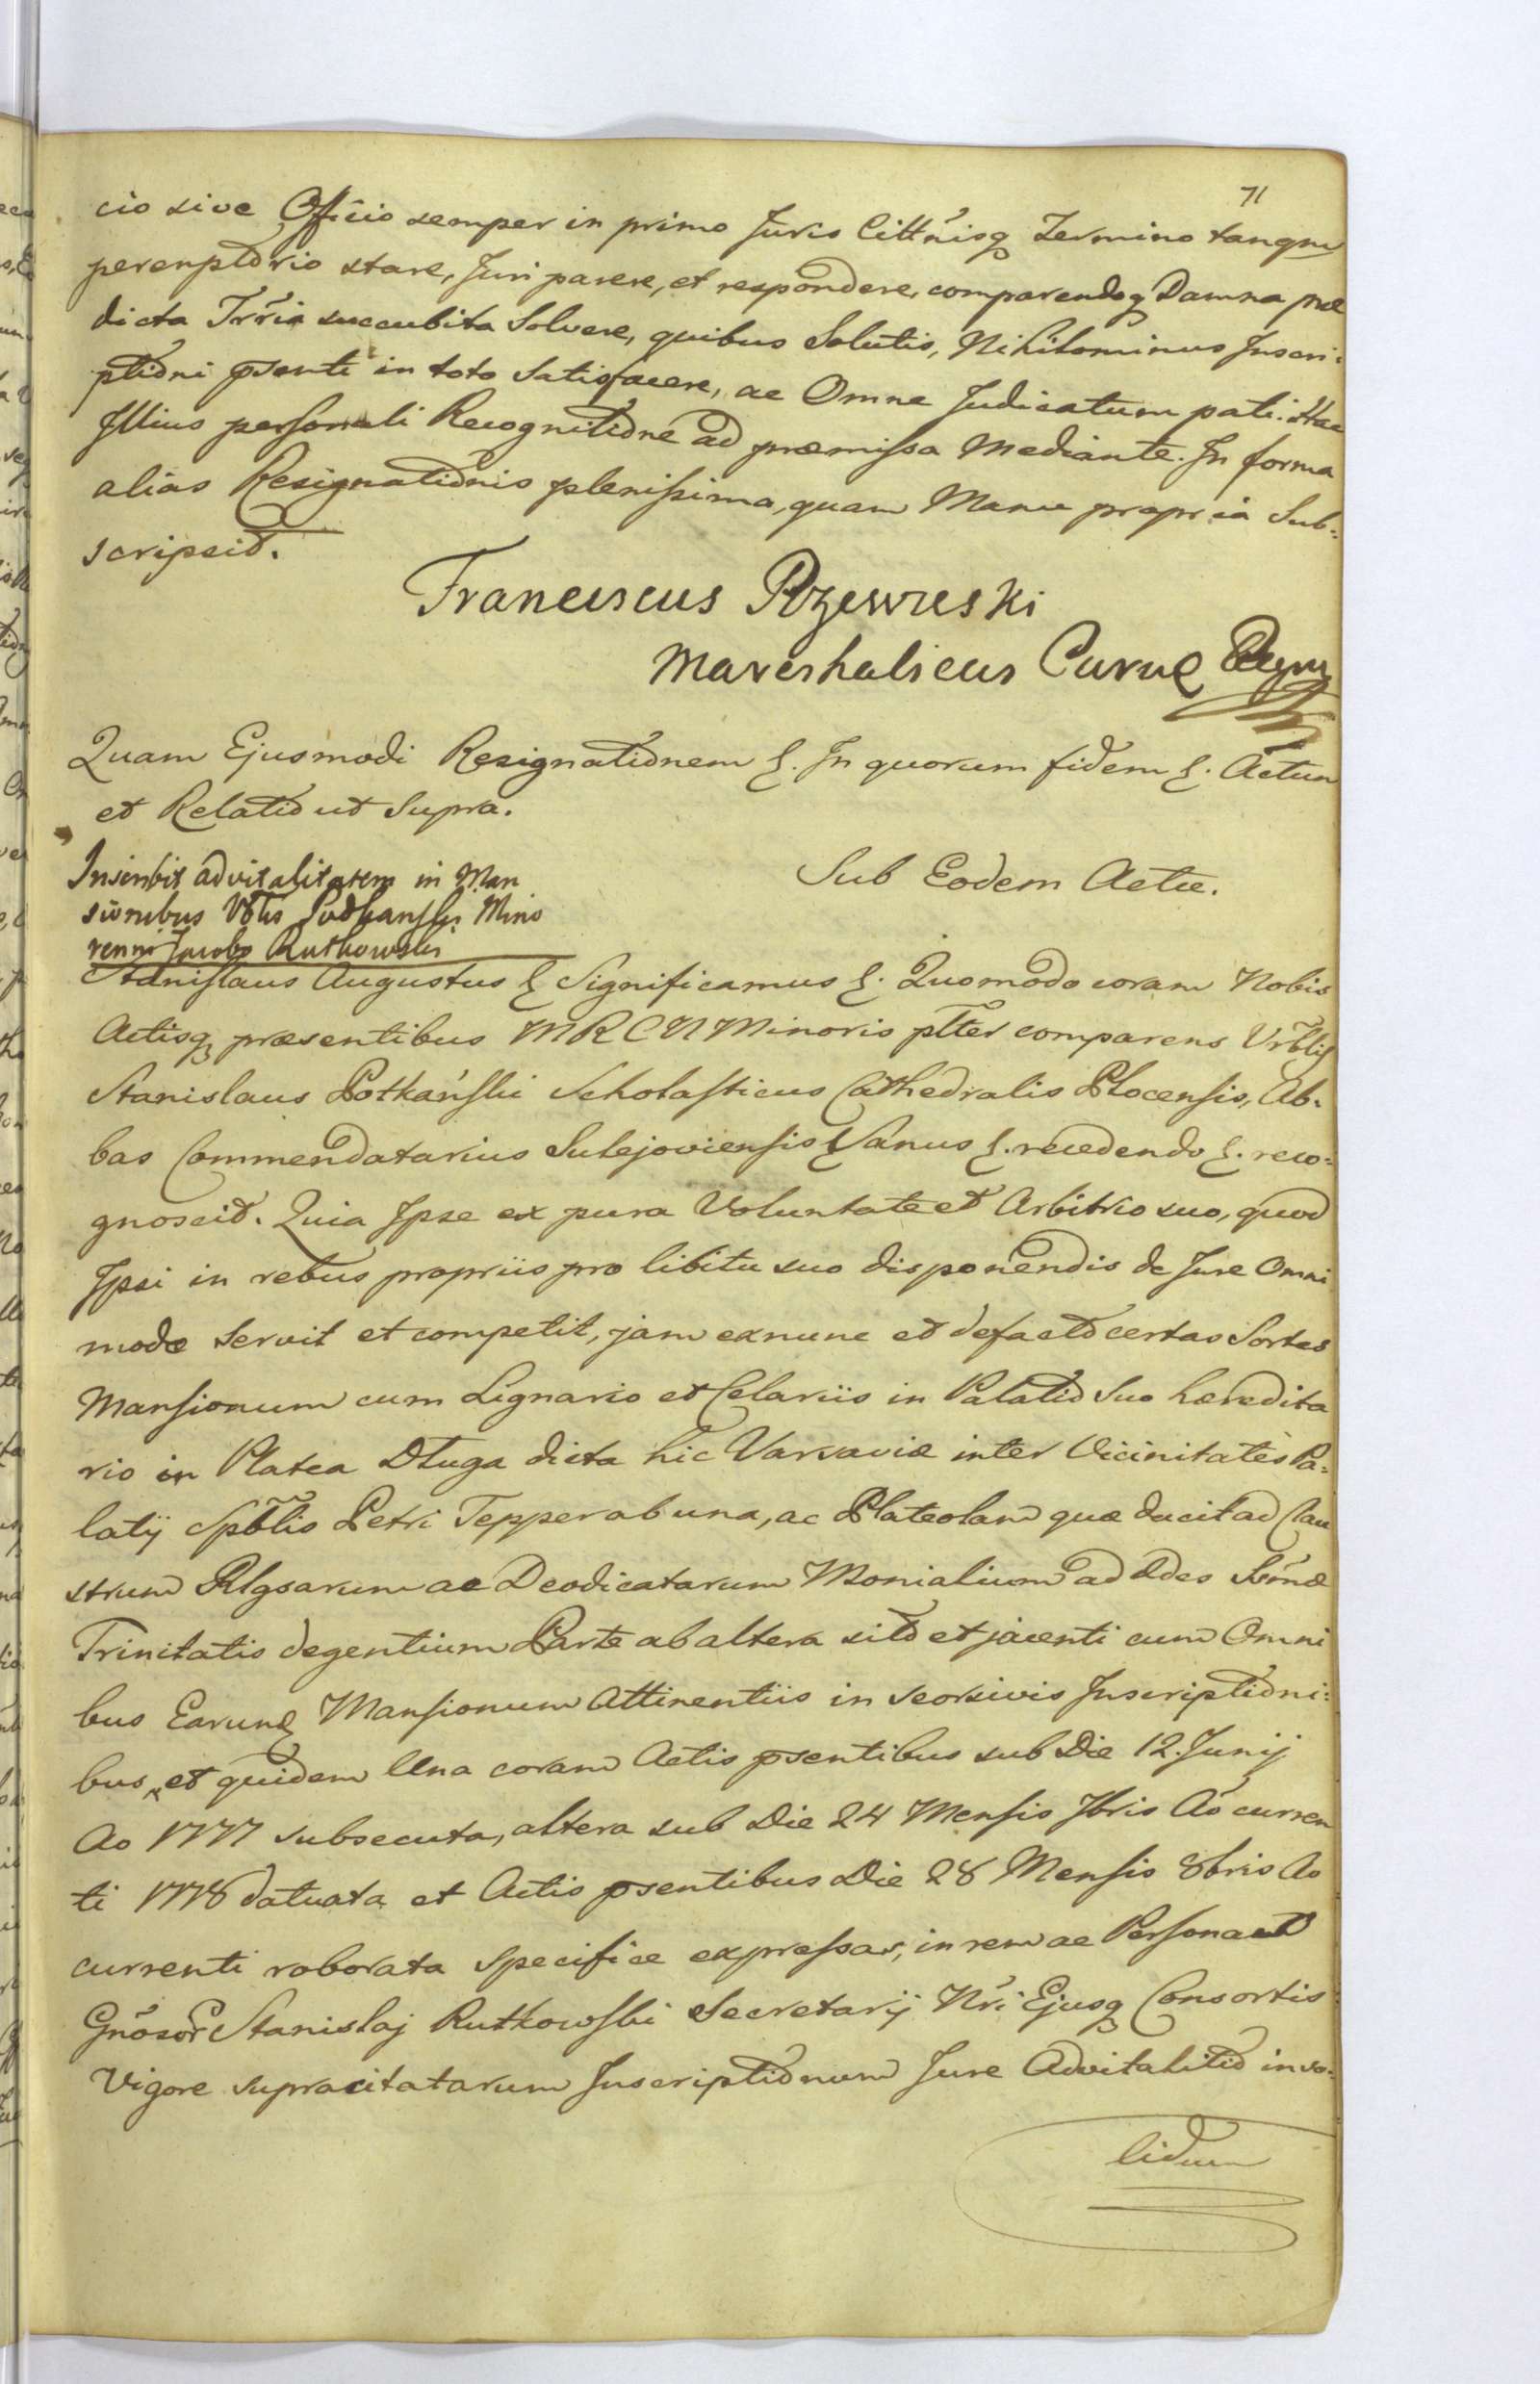 71
cio sive Officio semper in primo Juris Cittñisq Termino tanqm
peremptorio stare, Juri parere, et respondere, comparendoq Damna præ
dicta Irria succubita Solvere, quibus Solutis, Nihilominus Inscri-
ptioni psenti in toto Satisfacere, ac Omne Judicatum pati. Hac
Illius personali Recognitione ad præmissa Mediante. In forma
alias Resignationis plenissima, quam Manu propria Sub-
scripsit.
Franciscus Rzewuski
Mareshalicus Curiæ
Quam Ejusmodi Resignationem &. In quorum fidem &. Actum
et Relatio ut Supra.
Inscribit advitalitatem in Man
sionibus Vrblis Potkański Mino
renni Jacobo Rutkowski
Sub Eodem Actu.
Stanislaus Augustus & Significamus &. Quomodo coram Nobis
Actisq præsentibus MRCN Minoris plter comparens Vrblis
Stanislaus Potkański Scholasticus Cathedralis Plocensis, Ab-
bas Commendatarius Sulejoviensis Sanus &. recedendo &. reco-
gnoscit. Quia Ipse ex pura Voluntate et Arbitrio suo, quod
Ipsi in rebus propriis pro libitu suo disponendis de Jure Omni
modo Servit et competit, jam exnunc et defacto certas Sortes
Mansionum cum Lignario et Celariis in Palatio Suo hæredita
rio in Platea Długa dicta hic Varsaviæ inter Vicinitates Pa-
latij Spblis Petri Tepper ab una, ac Plateolam quæ ducit ad Clau
strum Rlgsarum ac Deodicatarum Monialium ad Ædes Ssmæ
Trinitatis degentium Parte ab altera sito et jacenti cum Omni
bus Earund Mansionum Attinentiis in seorsivis Inscriptioni-
bus, et quidem Una coram Actis psentibus sub Die 12. Junij
Ao 1777 subsecuta, altera sub Die 24 Mensis 7bris Ao curren
ti 1778 datuata et Actis psentibus Die 28 Mensis 8bris Ao
currenti roborata specifice expressas, in rem ac Personas
Gñosor Stanislaj Rutkowski Secretarij Nri Ejusq Consortis
Vigore supracitatarum Inscriptionum Jure Advitalitio in so-
lidum